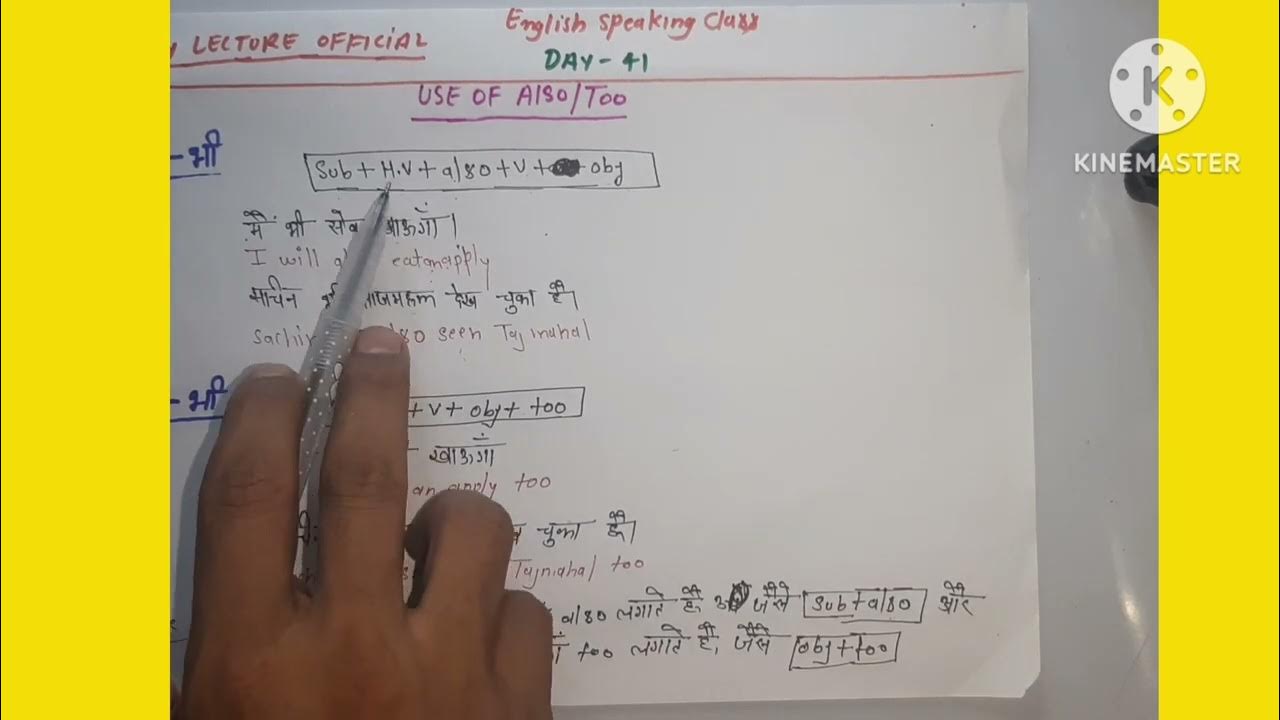 LECTURE OFFICIAL English speaking Class
DAY-41
USE OF Also/Too
KINEMASTER
-भी
Sub + H.V + also + V + + obj
मैं भी आऊगाँ।
I will eatanapply
सचिन देख चुका है।
seen Tajmahal
-भी
+ V + obj + too
खाऊगाँ
an apply too
चुका है।
Tajmahal too
also लगाते है, जैसे Sub + also और
too लगाते है, जैसे obj + too